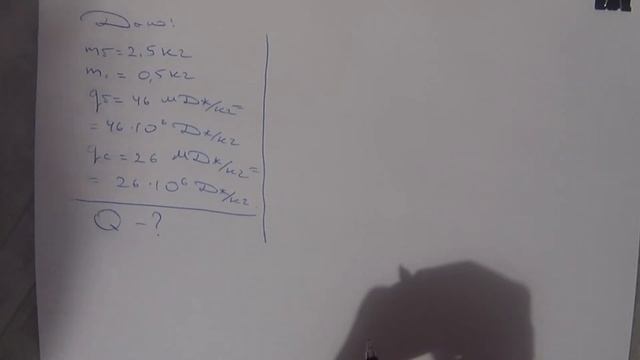 Дано:
mб = 2,5 кг
m. = 0,5 кг
qб = 46 мДж/кг =
= 46·10⁶ Дж/кг
qс = 26 мДж/кг =
= 26·10⁶ Дж/кг
Q - ?